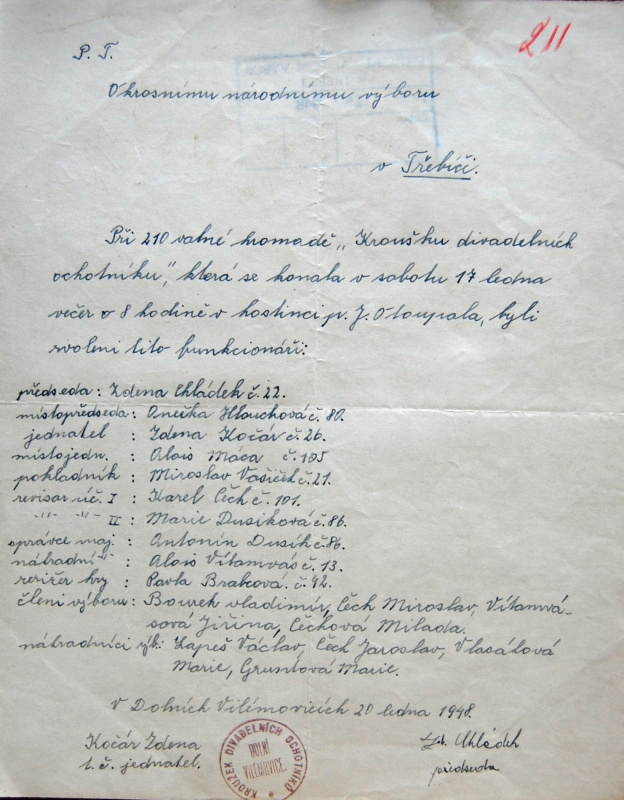 211
P. T.
Okresnímu národnímu výboru
v Třebíči.
Při 210 valné hromadě „Kroužku divadelních
ochotníku", která se konala v sobotu 17 ledna
večer o 8 hodině v hostinci p. J. Oloupala, byli
zvoleni tito funkcionáři:
předseda : Zdena Chládek č. 22.
místopředseda : Anežka Hlouchová č. 80.
jednatel : Zdena Kočár č. 26.
místojedn. : Alois Máca č. 105
pokladník : Miroslav Vašíček č. 21.
revisor úč. I : Karel Čech č. 101.
-"- -"- II : Marie Dusíková č. 86.
správce maj. : Antonín Dusík č. 86.
náhradní -"- : Alois Vítamvás č. 13.
režižer hry : Pavla Brabcová č. 42.
členi výboru : Bourek vladimír, Čech Miroslav, Vítamvá-
sová Jiřina, Čechová Milada.
náhradníci výb.: Kapeš Václav, Čech Jaroslav, Vlasáková
Marie, Gruntová Marie.
V Dolních Vilémovicích 20 ledna 1948.
Kočár Zdena
t. č. jednatel.
KROUŽEK DIVADELNÍCH OCHOTNÍKŮ
DOLNÍ
VILÉMOVICE.
Zd. Chládek
předseda